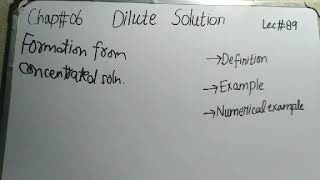 Chap#06 Dilute Solution Lec#89
Formation from
concentrated soln.
→Definition
→Example
→Numerical example